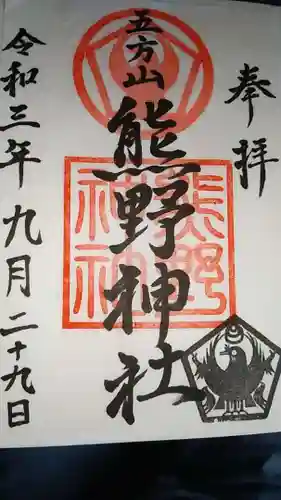 奉拝
五方山
熊野神社
熊野
神社
令和三年九月二十九日